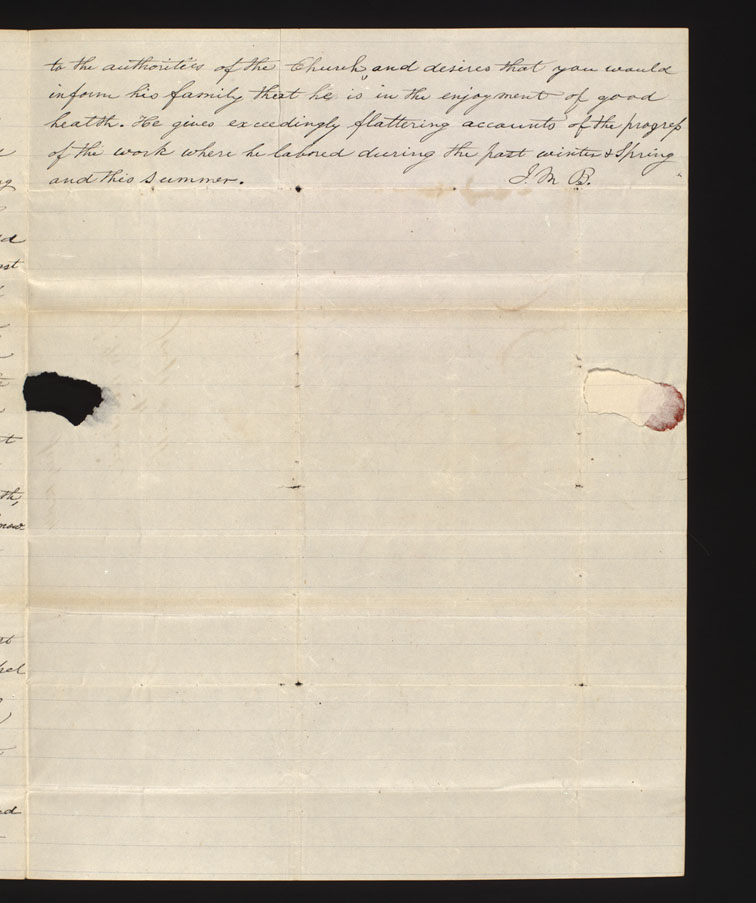 to the authorities of the Church, and desires that you would
inform his family that he is in the enjoyment of good
health. He gives exceedingly flattering accounts of the progress
of the work where he labored during the past winter & Spring
and this summer. J. M B.